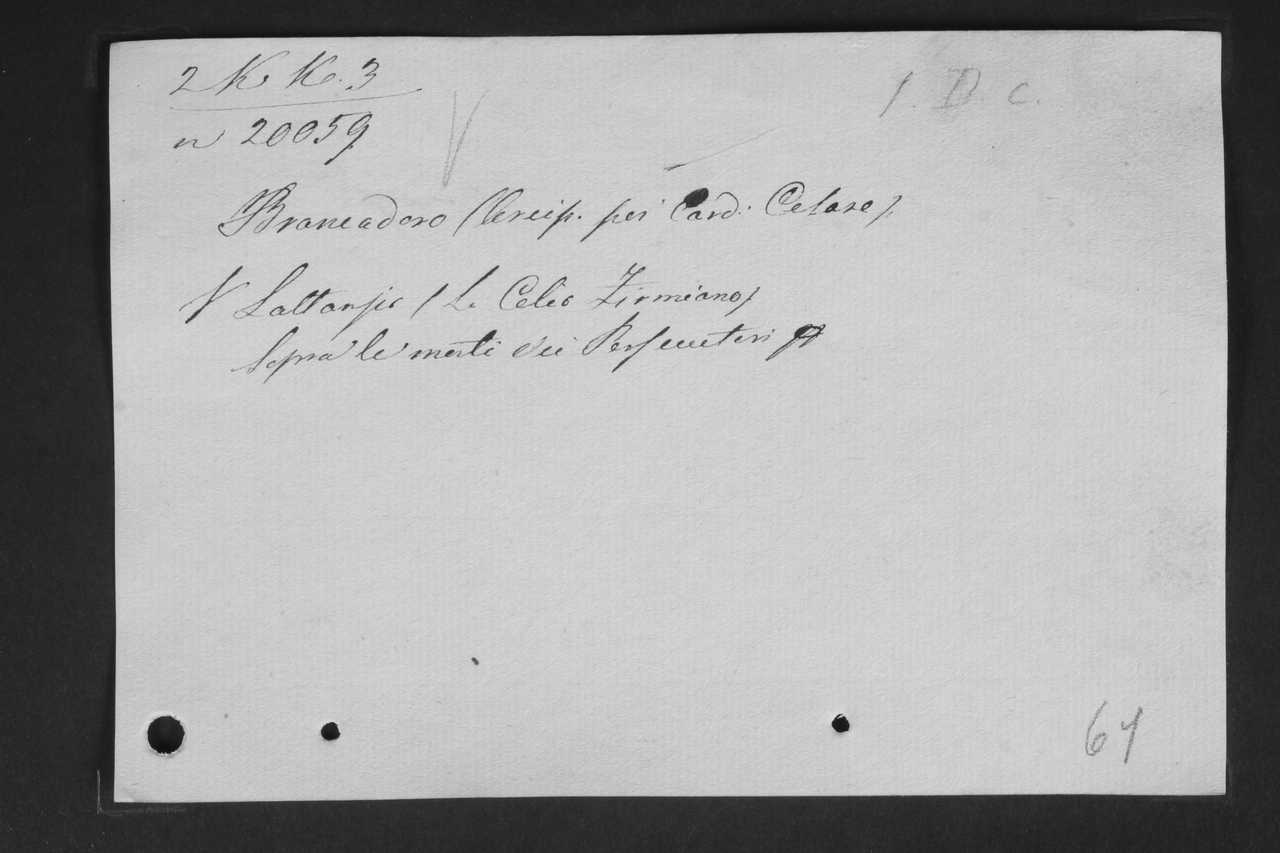 2 K. K. 3
n 20059
1. D. c.
Brancadoro (Arcip. poi Card: Cesare)
V Lattanzio (L. Celio Firmiano)
Sopra le morti dei Persecutori
61